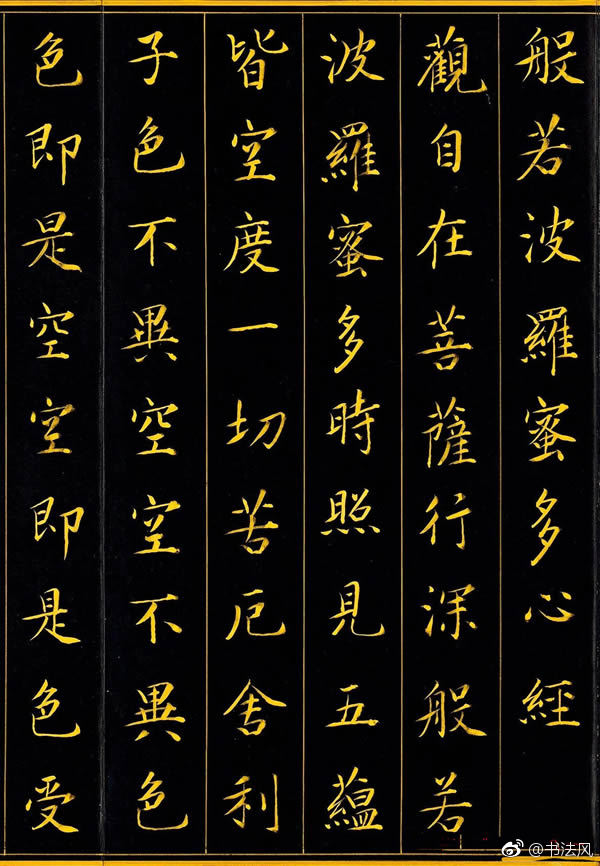 般若波羅蜜多心經
觀自在菩薩行深般若
波羅蜜多時照見五蘊
皆空度一切苦厄舍利
子色不異空空不異色
色即是空空即是色受
@书法风